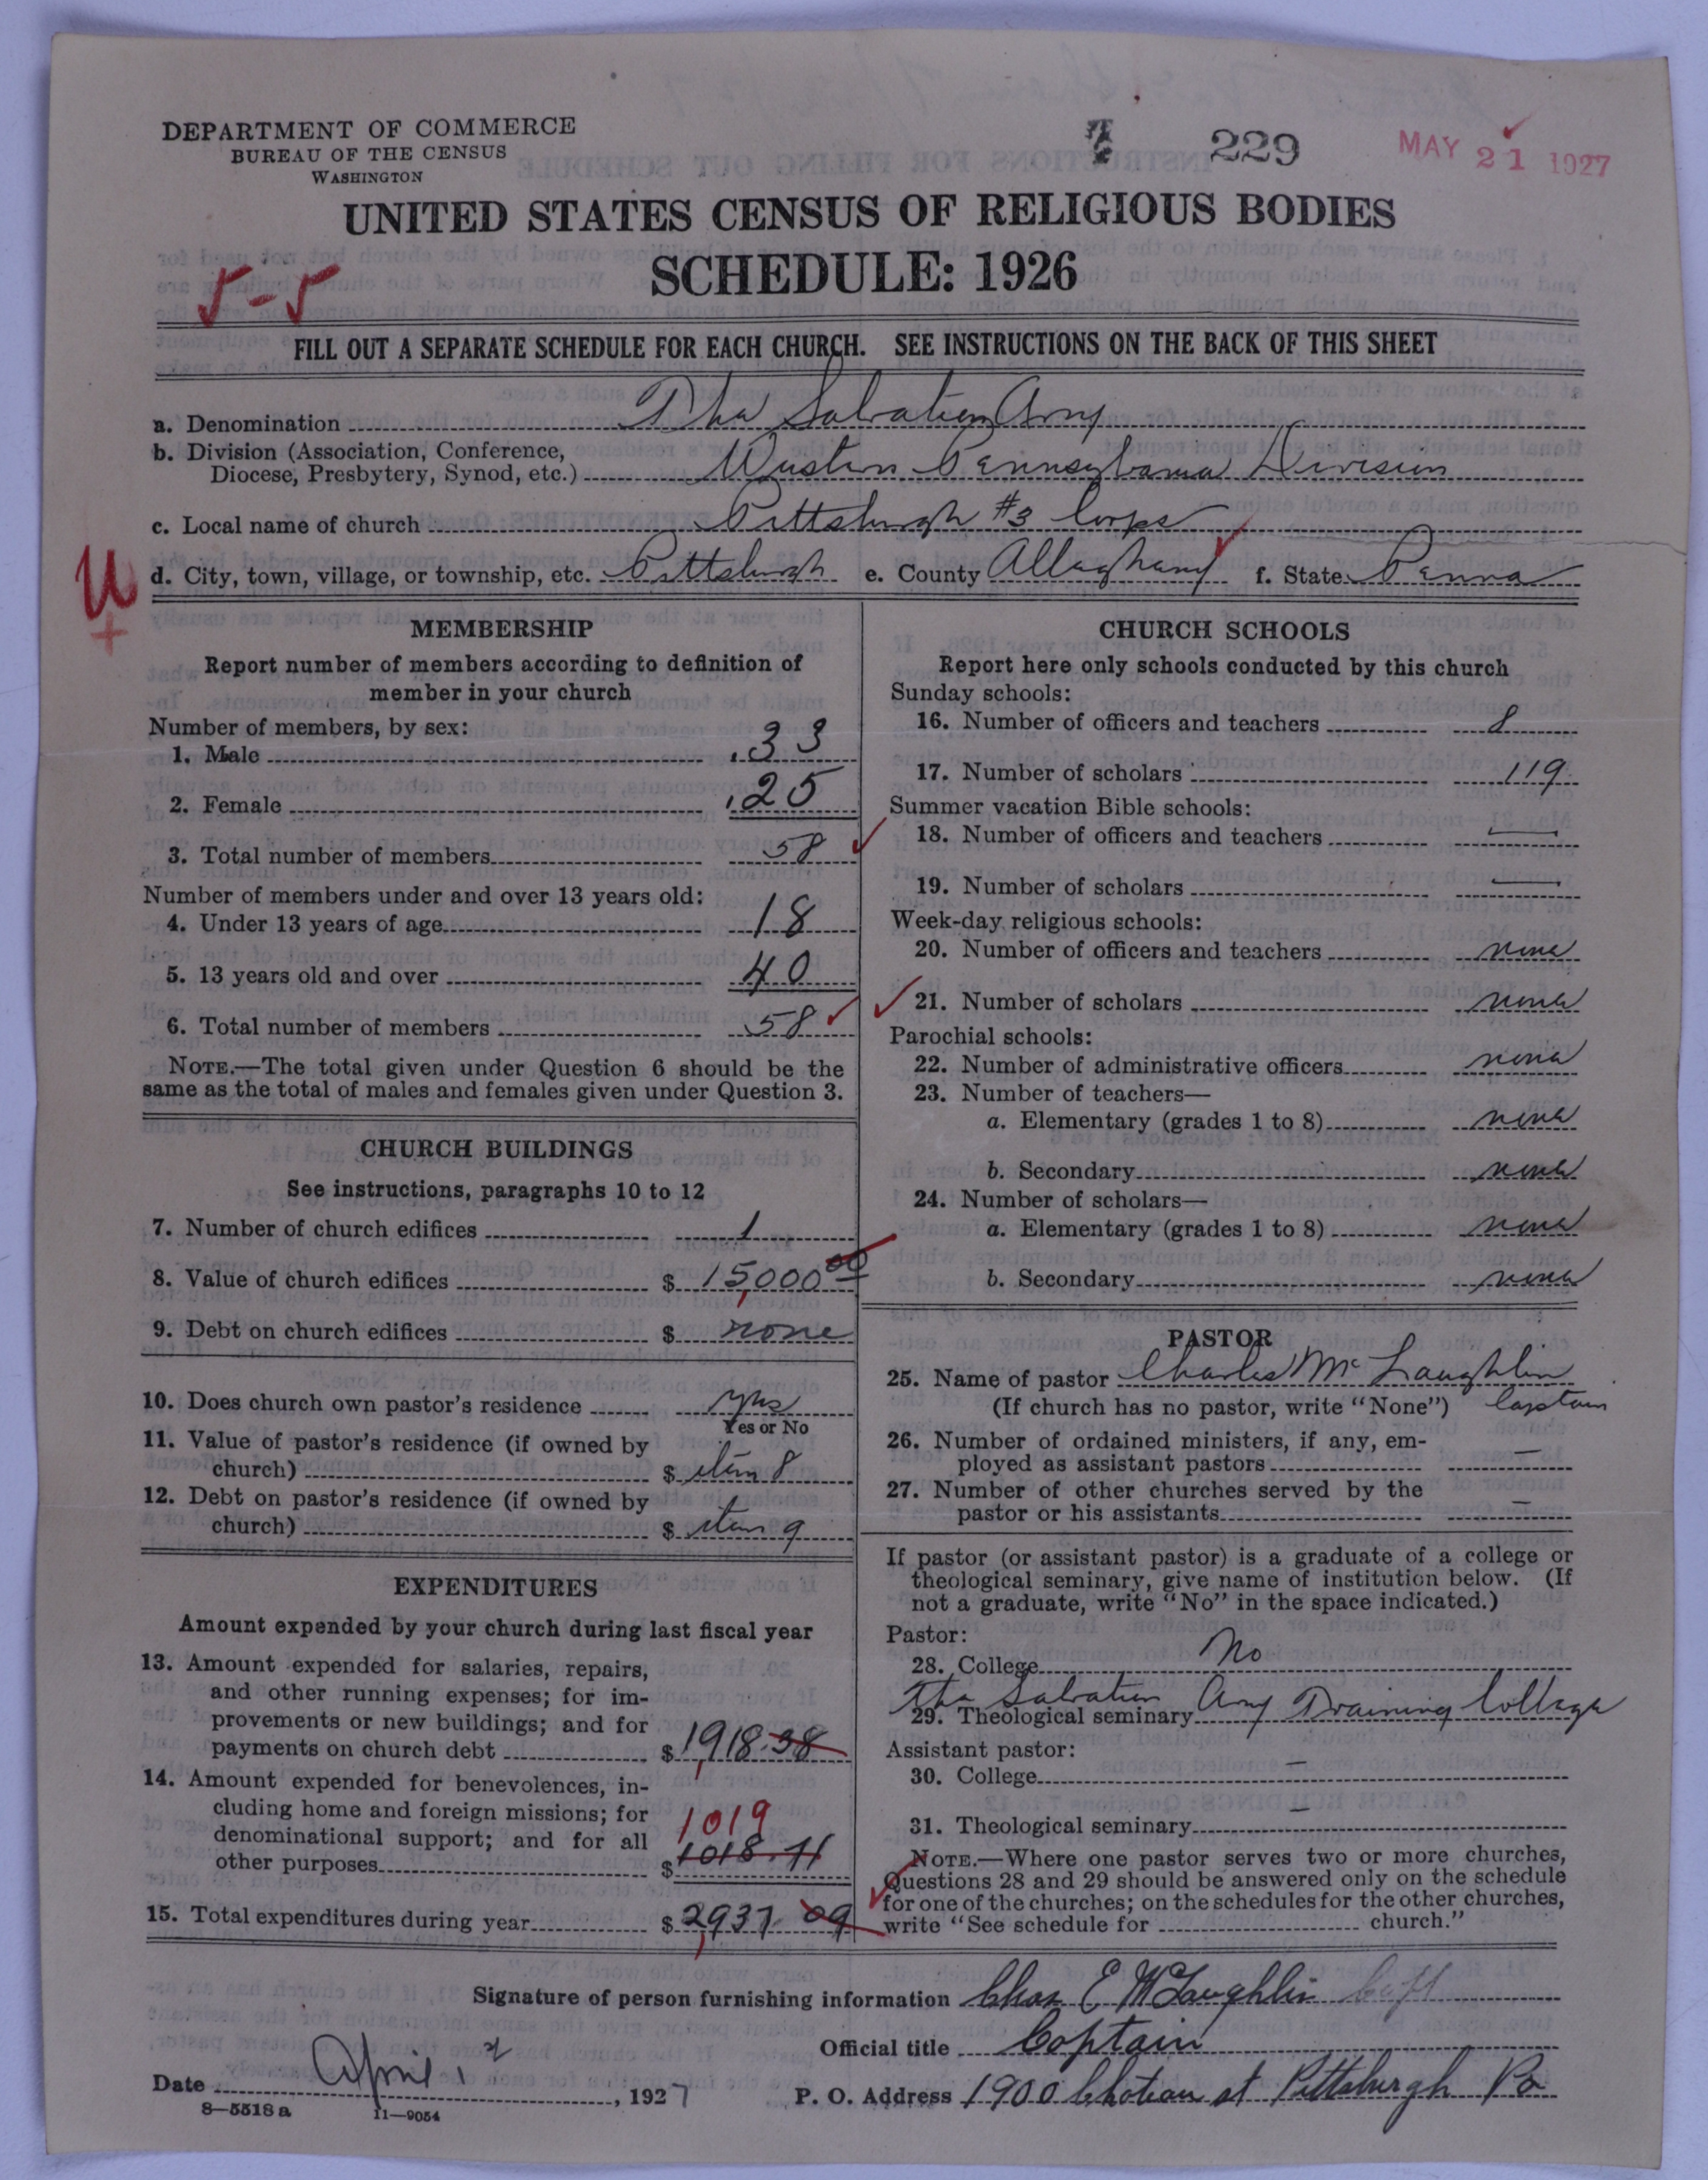 DEPARTMENT OF COMMERCE
BUREAU OF THE CENSUS
WASHINGTON
229
MAY 21 1927
UNITED STATES CENSUS OF RELIGIOUS BODIES
SCHEDULE: 1926
5-5
FILL OUT A SEPARATE SCHEDULE FOR EACH CHURCH. SEE INSTRUCTIONS ON THE BACK OF THIS SHEET
a. Denomination The Salvation Army
b. Division (Association, Conference,
Diocese, Presbytery, Synod, etc.) Western Pennsylvania Division
c. Local name of church Pittsburgh #3 Corps
U
+
d. City, town, village, or township, etc. Pittsburgh e. County Allegheny f. State Penna
MEMBERSHIP
Report number of members according to definition of
member in your church
Number of members, by sex:
1. Male 33
2. Female 25
3. Total number of members 58
Number of members under and over 13 years old:
4. Under 13 years of age 18
5. 13 years old and over 40
6. Total number of members 58
NOTE.—The total given under Question 6 should be the
same as the total of males and females given under Question 3.
CHURCH BUILDINGS
See instructions, paragraphs 10 to 12
7. Number of church edifices 1
8. Value of church edifices $ 15,000 00
9. Debt on church edifices $ none
10. Does church own pastor's residence yes
Yes or No
11. Value of pastor's residence (if owned by
church) $ item 8
12. Debt on pastor's residence (if owned by
church) $ item 9
EXPENDITURES
Amount expended by your church during last fiscal year
13. Amount expended for salaries, repairs,
and other running expenses; for im-
provements or new buildings; and for
payments on church debt $ 1,918.38
14. Amount expended for benevolences, in-
cluding home and foreign missions; for
denominational support; and for all 1019
other purposes $ 1018.71
15. Total expenditures during year $ 2,937.09
CHURCH SCHOOLS
Report here only schools conducted by this church
Sunday schools:
16. Number of officers and teachers 8
17. Number of scholars 119
Summer vacation Bible schools:
18. Number of officers and teachers —
19. Number of scholars —
Week-day religious schools:
20. Number of officers and teachers none
21. Number of scholars none
Parochial schools:
22. Number of administrative officers none
23. Number of teachers—
a. Elementary (grades 1 to 8) none
b. Secondary none
24. Number of scholars—
a. Elementary (grades 1 to 8) none
b. Secondary none
PASTOR
25. Name of pastor Charles McLaughlin
(If church has no pastor, write "None") Captain
26. Number of ordained ministers, if any, em-
ployed as assistant pastors —
27. Number of other churches served by the
pastor or his assistants —
If pastor (or assistant pastor) is a graduate of a college or
theological seminary, give name of institution below. (If
not a graduate, write "No" in the space indicated.)
Pastor:
28. College No
The Salvation Army Training College
29. Theological seminary
Assistant pastor:
30. College —
31. Theological seminary —
NOTE.—Where one pastor serves two or more churches,
Questions 28 and 29 should be answered only on the schedule
for one of the churches; on the schedules for the other churches,
write "See schedule for church."
Signature of person furnishing information Chas E McLaughlin Capt
Official title Captain
Date April 1st, 1927
P. O. Address 1900 Choteau st Pittsburgh Pa
8—5518 a 11—9054